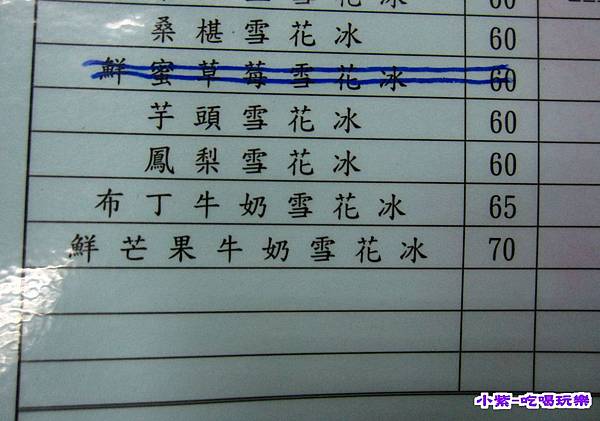 雪花冰 60
桑椹雪花冰 60
鮮蜜草莓雪花冰 60
芋頭雪花冰 60
鳳梨雪花冰 60
布丁牛奶雪花冰 65
鮮芒果牛奶雪花冰 70
小紫-吃喝玩樂